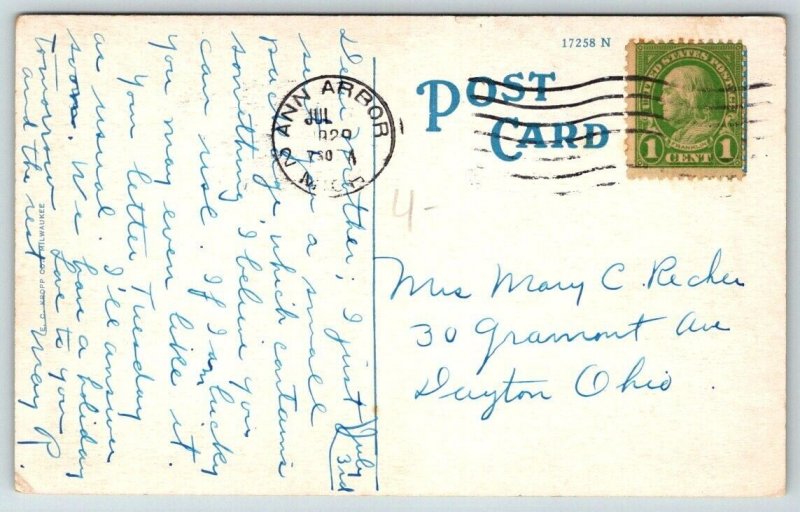 17258 N
POST
CARD
ANN ARBOR
JUL
1929
730
MICH
UNITED STATES POSTAGE
FRANKLIN
1 CENT 1
4-
July
3rd
Dear Mother; I just
sent you a small
package which contains
something I believe you
can use. If I'm lucky
you may even like it.
Your letter Tuesday
as usual. I'll answer
soon. We have a holiday
tomorrow. Love to you
and the rest Mary P.
E. C. KROPP CO. MILWAUKEE
Mrs Mary C. Recher
30 Gramont Ave
Dayton Ohio.